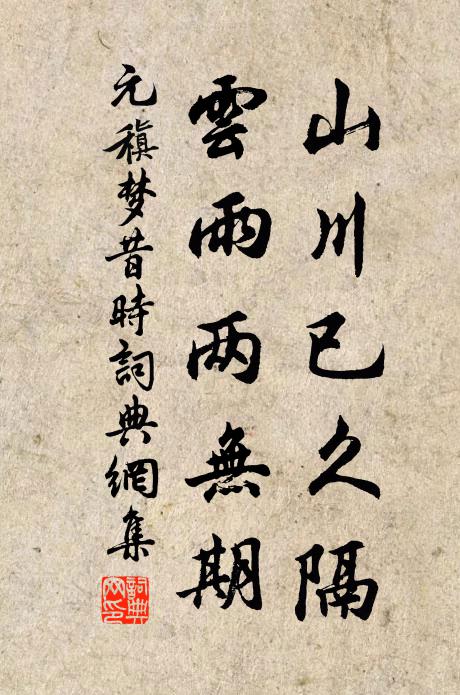 山川已久隔
雲雨两無期
元稹梦昔時詞典網集
詞典
网印